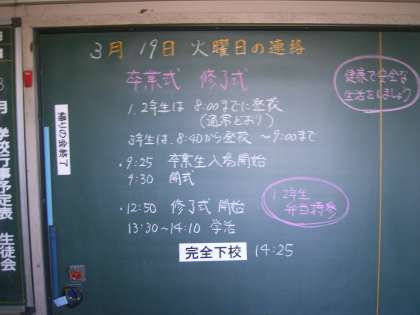 3月 19日 火曜日の連絡
卒業式 修了式
健康で安全な
生活をしましょう
1.2年生は 8:00までに登校
(通常どおり)
3年生は 8:40から登校 〜9:00まで
・9:25 卒業生入場開始
9:30 開式
・12:50 修了式 開始
13:30〜14:10 学活
1.2年生
弁当持参
完全下校 14:25
帰りの会終了
月 学校行事予定表 生徒会